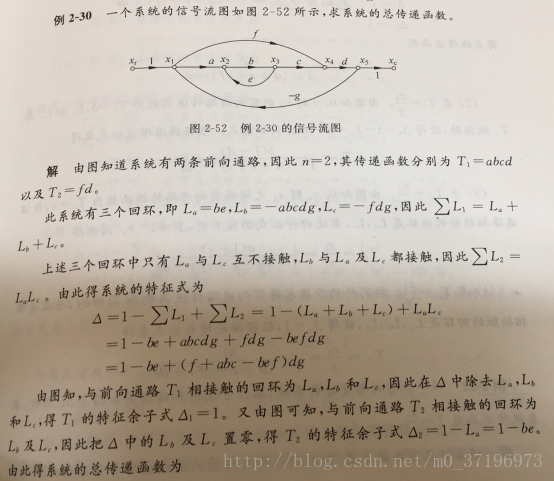 例 2-30 一个系统的信号流图如图 2-52 所示,求系统的总传递函数。
f
xr 1 x1 a x2 b x3 c x4 d x5 xc
e 1
-g
图 2-52 例 2-30 的信号流图
解 由图知道系统有两条前向通路,因此 n=2,其传递函数分别为 T₁=abcd
以及 T₂=fd。
此系统有三个回环,即 Lₐ=be,L_b=-abcdg,L_c=-fdg,因此 ∑L₁ = Lₐ+
L_b+L_c。
上述三个回环中只有 Lₐ 与 L_c 互不接触,L_b 与 Lₐ 及 L_c 都接触,因此 ∑L₂ =
LₐL_c。由此得系统的特征式为
Δ=1-∑L₁+∑L₂ = 1-(Lₐ+L_b+L_c)+LₐL_c
=1-be+abcdg+fdg-befdg
=1-be+(f+abc-bef)dg
由图知,与前向通路 T₁ 相接触的回环为 Lₐ,L_b 和 L_c,因此在 Δ 中除去 Lₐ,L_b
和 L_c,得 T₁ 的特征余子式 Δ₁=1。又由图可知,与前向通路 T₂ 相接触的回环为
L_b 及 L_c,因此把 Δ 中的 L_b 及 L_c 置零,得 T₂ 的特征余子式 Δ₂=1-Lₐ=1-be。
由此得系统的总传递函数为
http://blog.csdn.net/m0_37196973